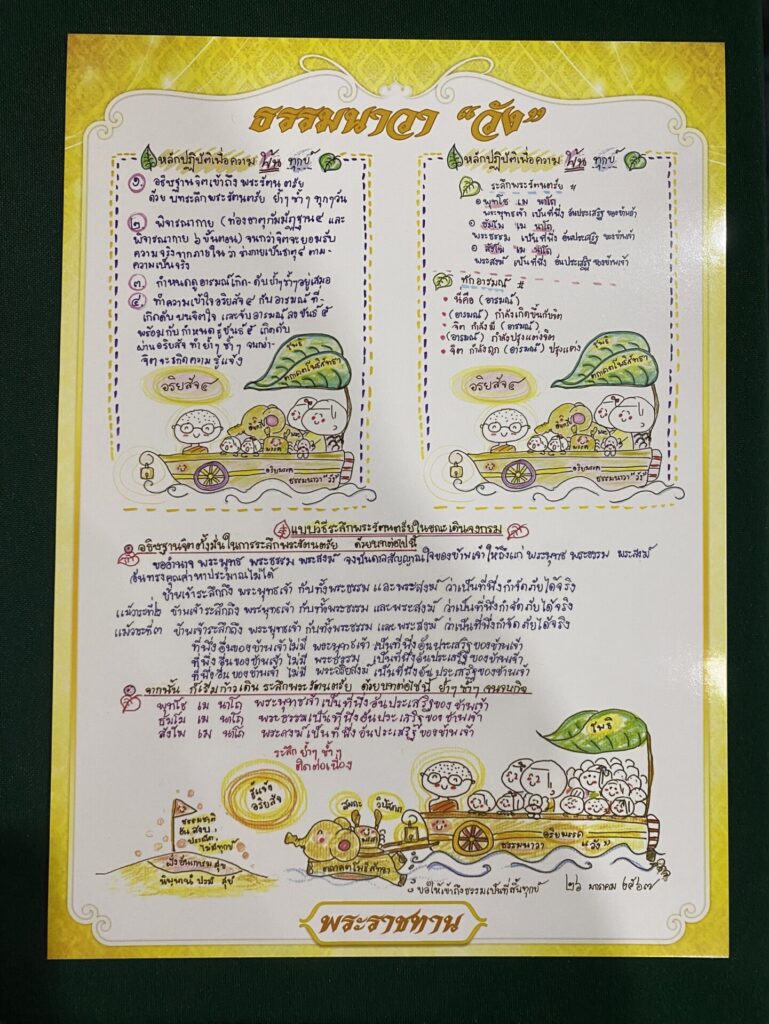 ธรรมนาวา "วัง"
หลักปฏิบัติเพื่อความ พ้น ทุกข์
๑. อธิษฐานจิตเข้าถึง พระรัตนตรัย
ด้วย บทระลึกพระรัตนตรัย ย้ำๆ ซ้ำๆ ทุกๆวัน
๒ พิจารณากาย (ท่องธาตุกัมมัฏฐาน๔ และ
พิจารณากาย ๖ ขั้นตอน) จนกว่าจิตจะยอมรับ
ความจริงจากภายใน ว่า ร่างกายเป็นธาตุ๔ ตาม
ความเป็นจริง
๓ กำหนดดูอารมณ์เกิด-ดับ ย้ำๆซ้ำๆอยู่เสมอ
๔ ทำความเข้าใจอริยสัจ๔ กับอารมณ์ ที่
เกิดดับ บนจิตใจ และจับอารมณ์ลงขันธ์ ๕
พร้อมกับกำหนดรู้ขันธ์๕ เกิดดับ
ผ่านอริยสัจ ทำย้ำๆ ซ้ำๆ จนกว่า
จิตจะเกิดความรู้แจ้ง
โพธิ
ตถาคตโพธิสัทธา
อริยสัจ๔
มรรค
อริยมรรค
ธรรมนาวา "วัง"
หลักปฏิบัติเพื่อความ พ้น ทุกข์
ระลึกพระรัตนตรัย
พุทโธ เม นาโถ
พระพุทธเจ้า เป็นที่พึ่ง อันประเสริฐ ของข้าเจ้า
ธัมโม เม นาโถ
พระธรรม เป็นที่พึ่ง อันประเสริฐ ของข้าเจ้า
สังโฆ เม นาโถ
พระสงฆ์ เป็นที่พึ่ง อันประเสริฐ ของข้าเจ้า
ทักอารมณ์ #
นี่คือ (อารมณ์)
(อารมณ์) กำลังเกิดขึ้นกับจิต
จิต กำลังมี (อารมณ์)
(อารมณ์) กำลังปรุงแต่งจิต
จิต กำลังถูก (อารมณ์) ปรุงแต่ง
โพธิ
ตถาคตโพธิสัทธา
อริยสัจ๔
มรรค
อริยมรรค
ธรรมนาวา "วัง"
แบบวิธีระลึกพระรัตนตรัยในขณะเดินจงกรม
อธิษฐานจิตตั้งมั่นในการระลึกพระรัตนตรัย ด้วยบทต่อไปนี้
ขออำนาจ พระพุทธ พระธรรม พระสงฆ์ จงบันดลสัญญาณใจของข้าพเจ้า ให้ถึงแก่ พระพุทธ พระธรรม พระสงฆ์
อันทรงคุณค่าหาประมาณไม่ได้
ข้าพเจ้าระลึกถึง พระพุทธเจ้า กับทั้งพระธรรม และพระสงฆ์ ว่าเป็นที่พึ่งกำจัดภัยได้จริง
แม้วาระที่๒ ข้าพเจ้าระลึกถึง พระพุทธเจ้า กับทั้งพระธรรม และพระสงฆ์ ว่าเป็นที่พึ่งกำจัดภัยได้จริง
แม้วาระที่๓ ข้าพเจ้าระลึกถึง พระพุทธเจ้า กับทั้งพระธรรม และพระสงฆ์ ว่าเป็นที่พึ่งกำจัดภัยได้จริง
ที่พึ่งอื่นของข้าพเจ้าไม่มี พระพุทธเจ้า เป็นที่พึ่งอันประเสริฐของข้าพเจ้า
ที่พึ่งอื่นของข้าพเจ้า ไม่มี พระธรรม เป็นที่พึ่งอันประเสริฐของข้าพเจ้า
ที่พึ่งอื่นของข้าพเจ้า ไม่มี พระอริยสงฆ์ เป็นที่พึ่งอันประเสริฐของข้าพเจ้า
จากนั้น ก็เริ่มก้าวเดิน ระลึกพระรัตนตรัย ด้วยบทต่อไปนี้ ย้ำๆ ซ้ำๆ
พุทโธ เม นาโถ พระพุทธเจ้าเป็นที่พึ่งอันประเสริฐของข้าพเจ้า
ธัมโม เม นาโถ พระธรรมเป็นที่พึ่งอันประเสริฐของข้าพเจ้า
สังโฆ เม นาโถ พระสงฆ์เป็นที่พึ่งอันประเสริฐของข้าพเจ้า
ระลึก ย้ำๆ ซ้ำๆ
ติดต่อเนื่อง
โพธิ
รู้แจ้ง
อริยสัจ
สมถะ วิปัสสนา
ธรรมชาติ
อัน สงบ,
ประณีต,
ไม่มีทุกข์
ฝั่งอันเกษมสุข
นิพพานํ ปรมํ สุขํ
ตถาคตโพธิสัทธา
อริยมรรค
ธรรมนาวา "วัง"
ขอให้เข้าถึงธรรมเป็นที่สิ้นทุกข์ ๒๖ มกราคม ๒๕๖๗
พระราชทาน